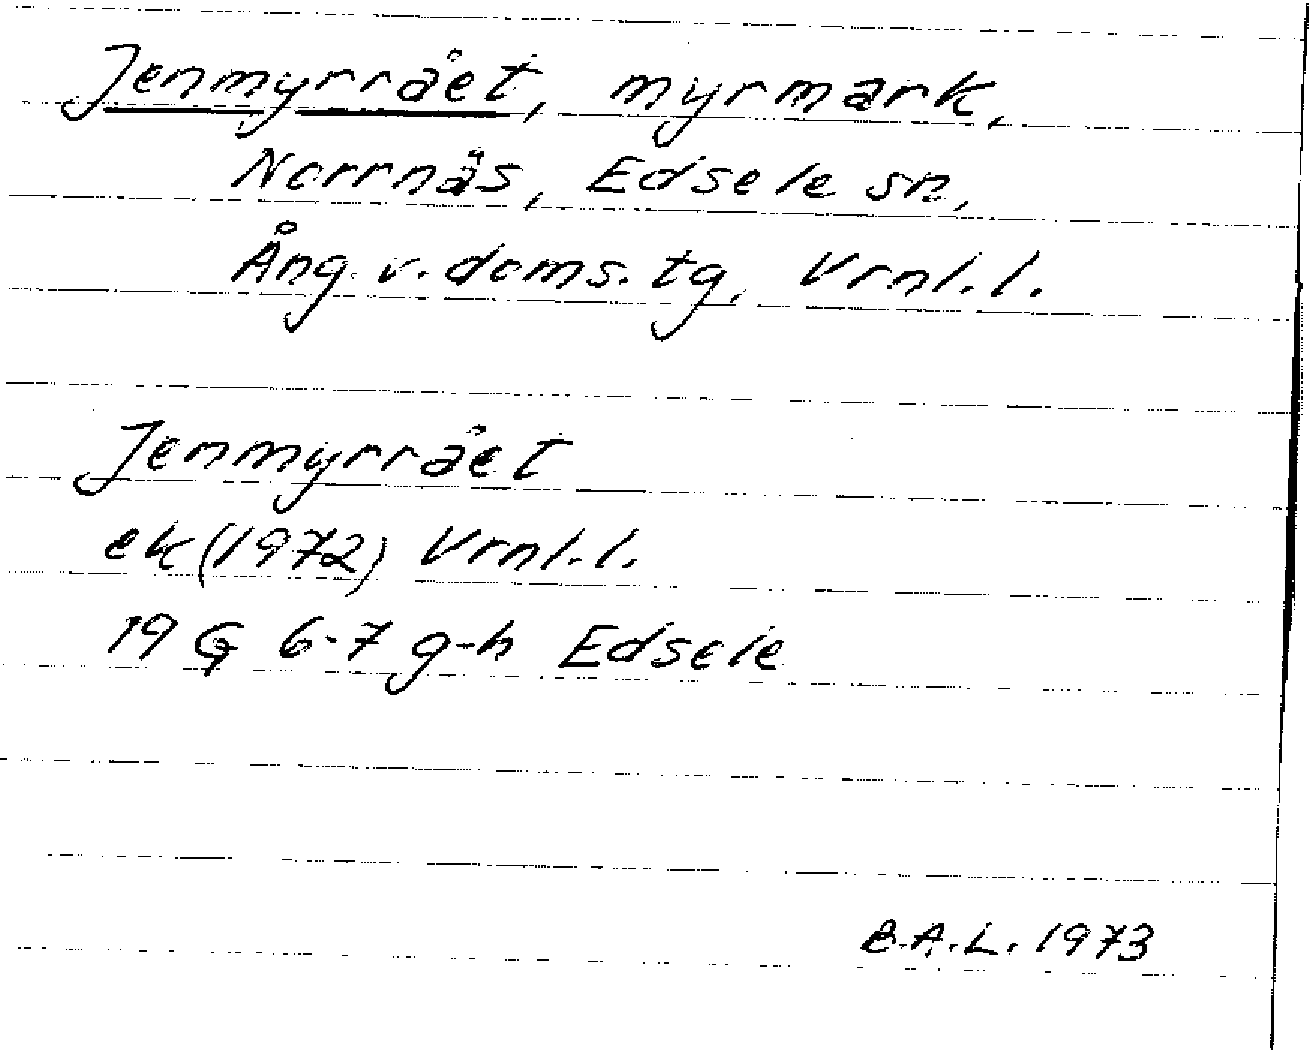 Jenmyrrået, myrmark,
Norrnäs, Edsele sn,
Ång. v. doms. tg, Vrnl. l.
Jenmyrrået
ek (1972) Vrnl. l.
19 G 6-7 g-h Edsele
B.A.L. 1973